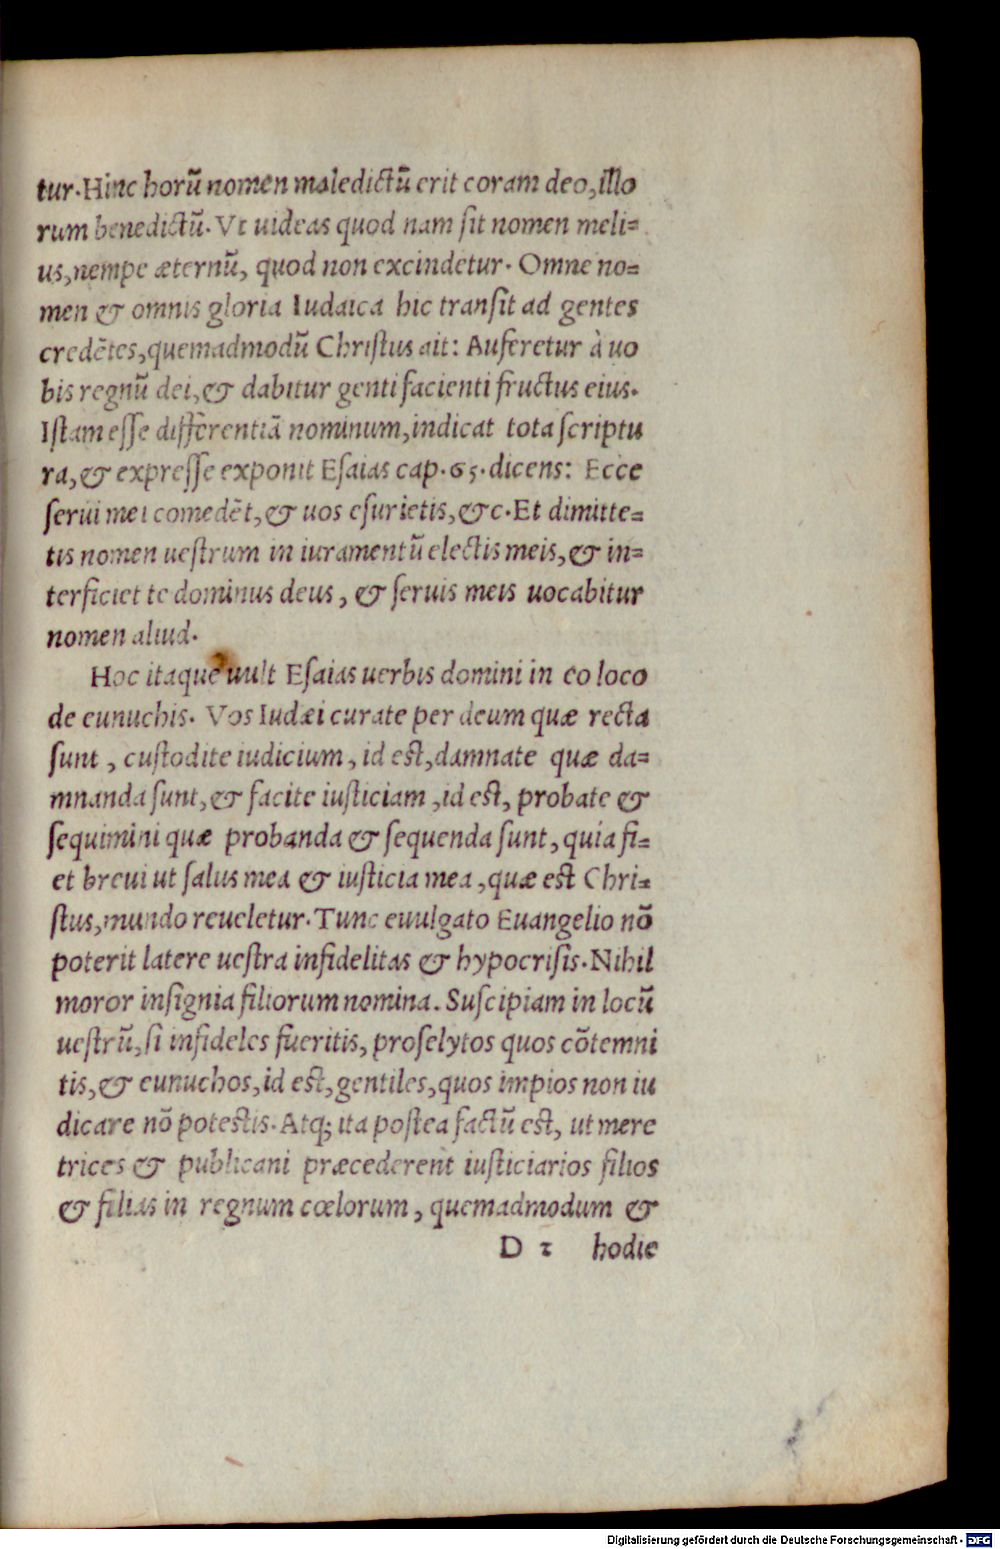 tur. Hinc horū nomen maledictū erit coram deo, illo
rum benedictū. Vt uideas quod nam sit nomen meli=
us, nempe æternū, quod non excindetur. Omne no=
men & omnis gloria Iudaica hic transit ad gentes
credētes, quemadmodū Christus ait: Auferetur à uo
bis regnū dei, & dabitur genti facienti fructus eius.
Istam esse differentiā nominum, indicat tota scriptu
ra, & expresse exponit Esaias cap. 65. dicens: Ecce
serui mei comedēt, & uos esurietis, &c. Et dimitte=
tis nomen uestrum in iuramentū electis meis, & in=
terficiet te dominus deus, & seruis meis uocabitur
nomen aliud.
Hoc itaque uult Esaias uerbis domini in eo loco
de eunuchis. Vos Iudæi curate per deum quæ recta
sunt, custodite iudicium, id est, damnate quæ da=
mnanda sunt, & facite iusticiam, id est, probate &
sequimini quæ probanda & sequenda sunt, quia fi=
et breui ut salus mea & iusticia mea, quæ est Chri=
stus, mundo reueletur. Tunc euulgato Euangelio nō
poterit latere uestra infidelitas & hypocrisis. Nihil
moror insignia filiorum nomina. Suscipiam in locū
uestrū, si infideles fueritis, proselytos quos cōtemni
tis, & eunuchos, id est, gentiles, quos impios non iu
dicare nō potestis. Atq; ita postea factū est, ut mere
trices & publicani præcederent iusticiarios filios
& filias in regnum cœlorum, quemadmodum &
D 2 hodie
Digitalisierung gefördert durch die Deutsche Forschungsgemeinschaft - DFG